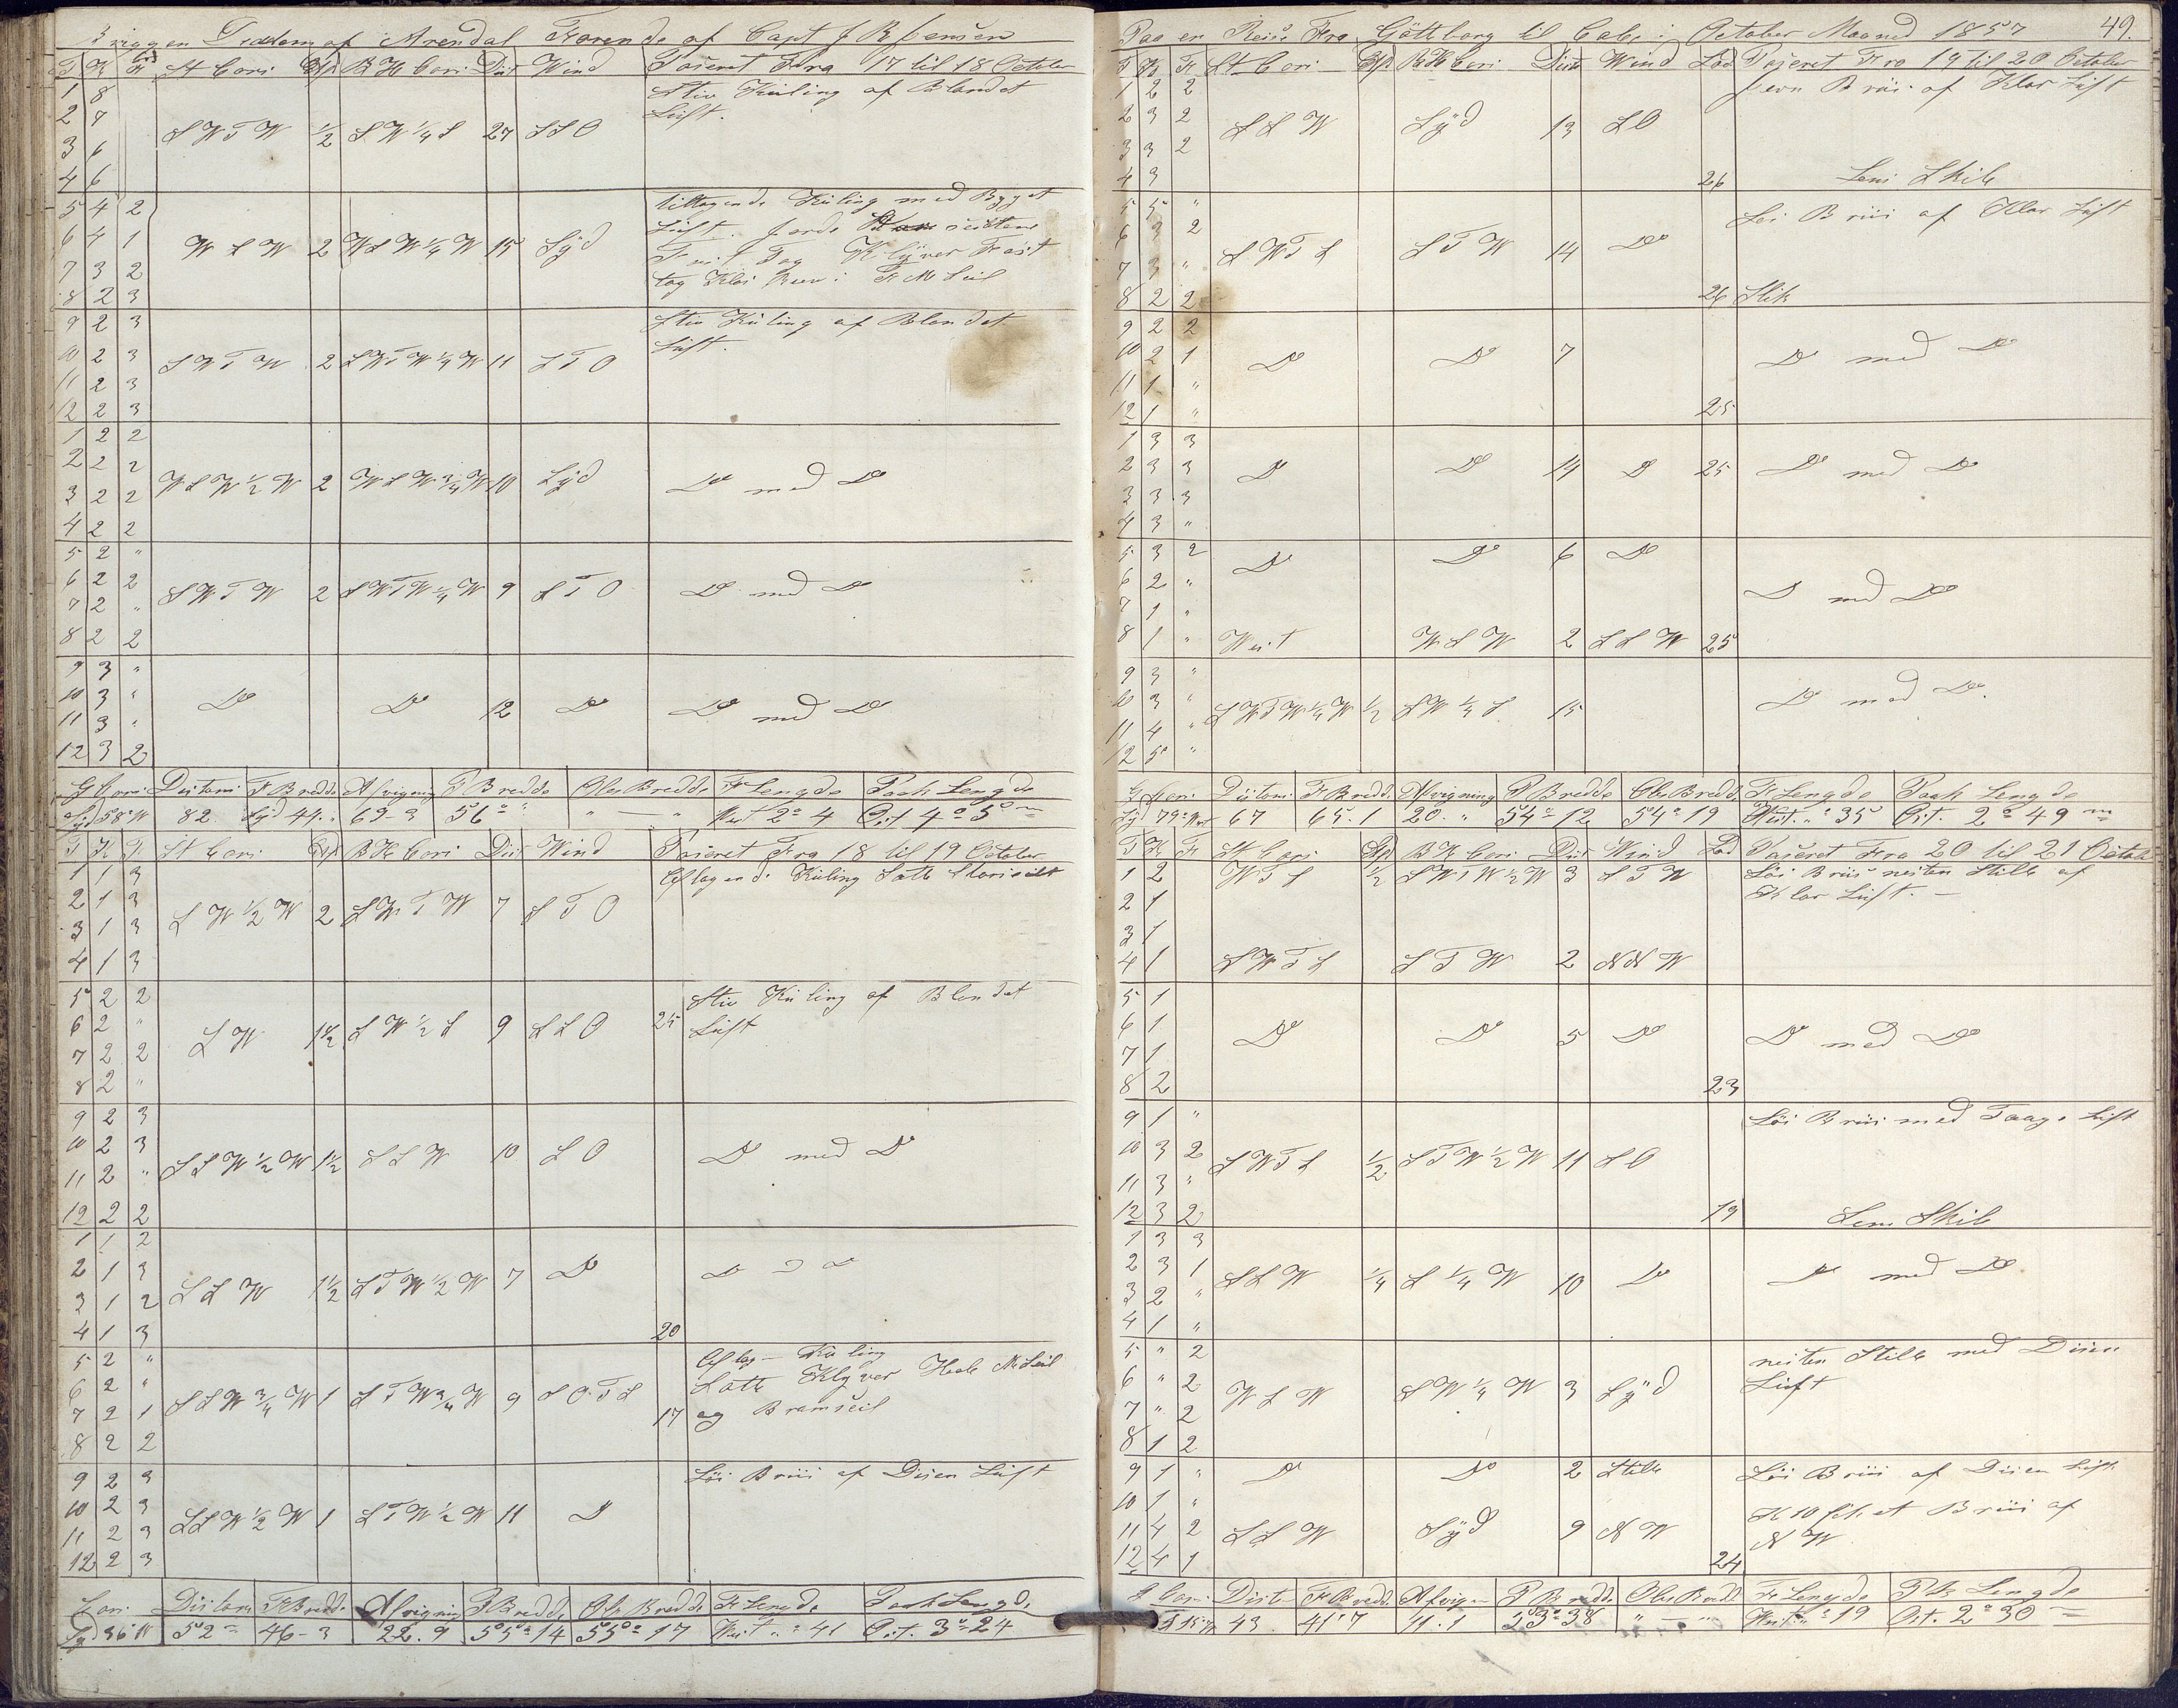 Briggen af Arendal Førende af Capt J B Jensen
T K F St Cors Afd BH Cors Dist Wind Passeret Fra 17 til 18 October
1 8 Stiv Küling af Blandet
2 7 S W T W 1/2 S W 1/4 S 27 S S O Lüft.
3 6
4 6
5 4 2 tiltagende Küling med Bygget
6 4 1 W S W 2 WSW 1/4 W 15 Syd Lüft.
7 3 2 Klyver Fast
8 2 3 tog
9 2 3 Stiv Küling af Blandet
10 2 3 S W T W 2 SWTW 1/4 W 11 S T O Lüft.
11 2 3
12 2 3
1 2 2
2 2 2
3 2 2 WSW 1/2 W 2 WSW 3/4 W 10 Syd Do med Do
4 2 2
5 2 "
6 2 2 S W T W 2 SWTW 1/4 W 9 S T O Do med Do
7 2 "
8 2 2
9 3 "
10 3 " Do Do 12 Do Do med Do
11 3 "
12 3 2
G Cors Distans F Bredde Afvigning P Bredde Obs Bredde F Lengde Paak Lengde
Syd 58° W 82 Syd 44." 69-3 56° " " — " West 2° 4 Ost 4° 5 m
T K F St Cors Afd BH Cors Dist Wind Passeret Fra 18 til 19 October
1 1 3 Aftagende Küling Satte Storseilet
2 1 3 S W 1/2 W 2 S W T W 7 S T O
3 1 3
4 1 3
5 2 2 Stiv Küling af Blandet
6 2 " S W 1 1/2 S W 1/2 S 9 S S O 25 Lüft
7 2 2
8 2 "
9 2 3
10 2 3 S S W 1/2 W 1 1/2 S S W 10 S O Do med Do
11 2 "
12 2 2
1 1 2
2 1 3 S S W 1 1/2 S T W 1/2 W 7 Do Do Do
3 1 2
4 1 3 20
5 2 " Aftag- Küling
6 2 " S S W 3/4 W 1 S T W 3/4 W 9 S O T S Satte Klyver M Seil
7 2 1 17 og Bramseil
8 2 2
9 2 3 Löi Briis af Disen Lüft
10 2 3 S S W 1/2 W 1 S T W 1/2 W 11 Do
11 2 3
12 2 3
Cors Distans F Bredde Afvigning P Bredde Obs Bredde F Lengde Paak Lengde
Syd 26° W 52 m 46-3 22.9 55° 14 55° 17 West " ° 41 Ost. 3° 24
Paa en Reise Fra Göttborg til October Maaned 1857 49.
T K F St Cors Afd BH Cors Dist Wind Lod Passeret Fra 19 til 20 October
1 2 2 Jevn Briis af Klar Lüft
2 3 2 S S W Syd 13 S O
3 3 2
4 3 26 Lens Skib
5 5 " Löi Briis af Klar Lüft
6 3 2 S W T S S T W 14 Do
7 3 "
8 2 2 26 Slik
9 2 2
10 2 1 Do Do 7 Do med Do
11 1 "
12 1 " 25
1 3 3
2 3 3 Do Do 14 Do 25 Do med Do
3 3 3
4 3 "
5 3 2 Do Do 6 Do
6 2 " Do med Do
7 1 "
8 1 " West W S W 2 S S W 25
9 3 "
10 3 " S W T W 1/4 W 1/2 S W 1/4 S 15 Do med Do
11 4 "
12 5 "
G Cors Distans F Bredde Afvigning P Bredde Obs Bredde F Lengde Paak Lengde
67 65.1 20." 54° 12 54° 19 West. " ° 35 Ost. 2° 49 m
T K F St Cors Afd BH Cors Dist Wind Lod Passeret Fra 20 til 21 October
1 2 W T S 1/2 S W T W 1/2 W 3 S T W Löi Briis nesten Stille af
2 1 Klar Lüft. —
3 1
4 1 S W T S S T W 2 N N W
5 1
6 1 Do Do 5 Do Do med Do
7 1
8 2 23
9 1 " Löi Briis med Taage Lüft
10 3 2 S W T S 1/2 S T W 1/2 W 11 S O
11 3 "
12 3 2 19 Lens Skib
1 3 3
2 3 1 S S W 1/4 S 1/4 W 10 Do Do med Do
3 2 "
4 1 "
5 " 2 nesten Stille med Disen
6 " 2 W S W S W 1/4 W 3 Syd Lüft
7 " 2
8 1 2
9 1 " Do Do 2 Stille Löi Briis af Disen Lüft
10 1 " K 10 Briis af
11 4 2 S S W Syd 9 N W N W
12 4 1 24
G Cors Dist F Bredde Afvign- P Bredde Obs Bredde F Lengde Pk Lengde
43 41"7 11.1 53° 38 " — " West. " ° 19 Ost. 2° 30 m